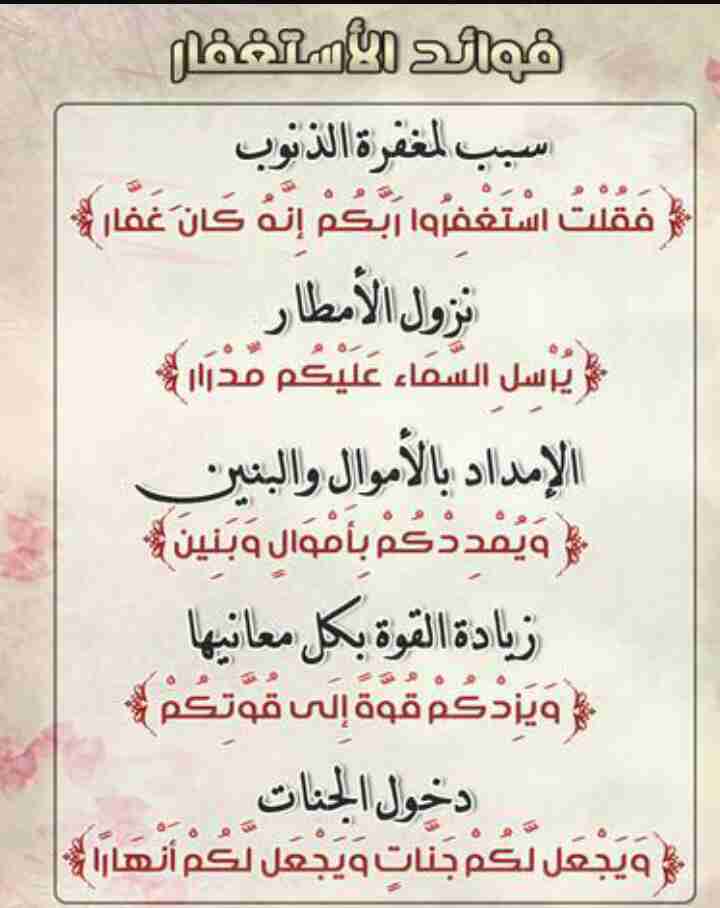 فوائد الأستغفار
سبب لمغفرة الذنوب
﴿فَقُلْتُ اسْتَغْفِرُوا رَبَّكُمْ إِنَّهُ كَانَ غَفَّار﴾
نزول الأمطار
﴿يُرْسِلِ السَّمَاء عَلَيْكُم مِّدْرَار﴾
الإمداد بالأموال والبنين
﴿وَيُمْدِدْكُمْ بِأَمْوَالٍ وَبَنِينَ﴾
زيادة القوة بكل معانيها
﴿وَيَزِدْكُمْ قُوَّةً إِلَى قُوَّتِكُمْ﴾
دخول الجنات
﴿وَيَجْعَل لَّكُمْ جَنَّاتٍ وَيَجْعَل لَّكُمْ أَنْهَارًا﴾